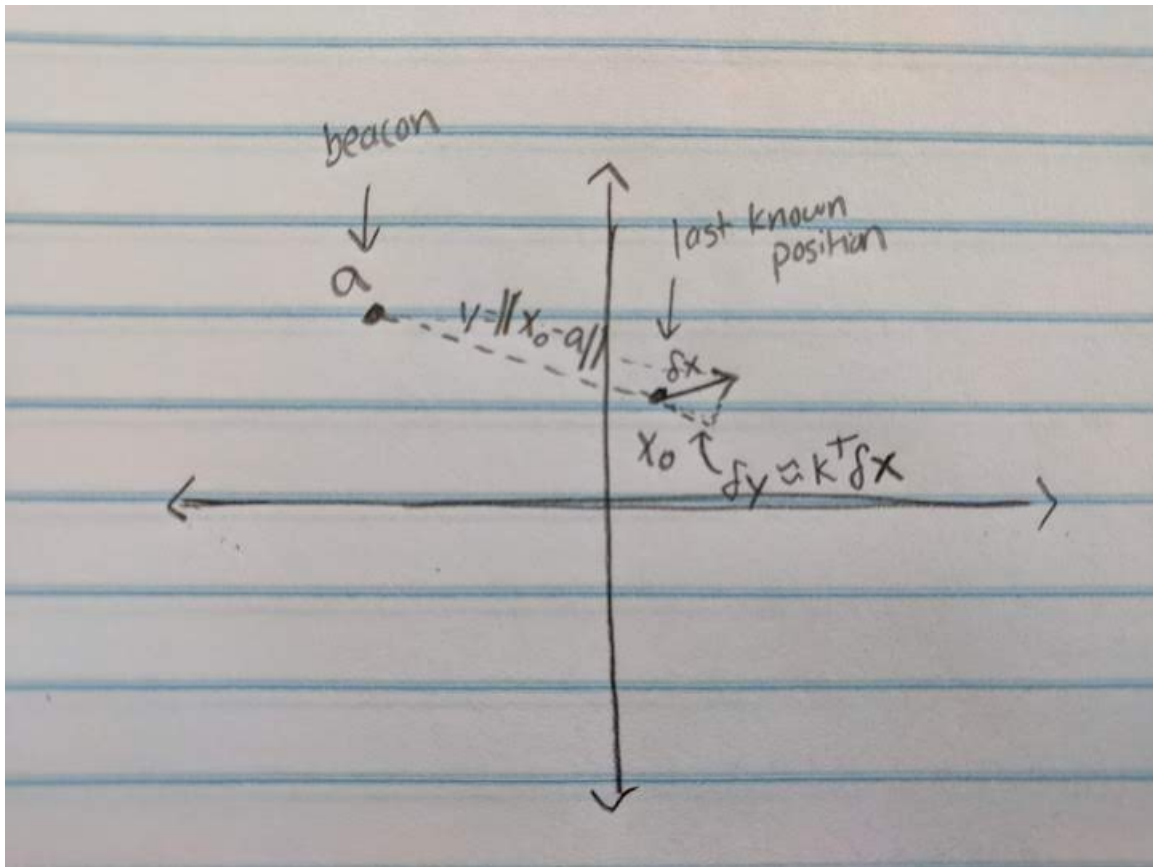 beacon
last known
position
a
y=||x₀-a||
δx
x₀
δy≈k^Tδx